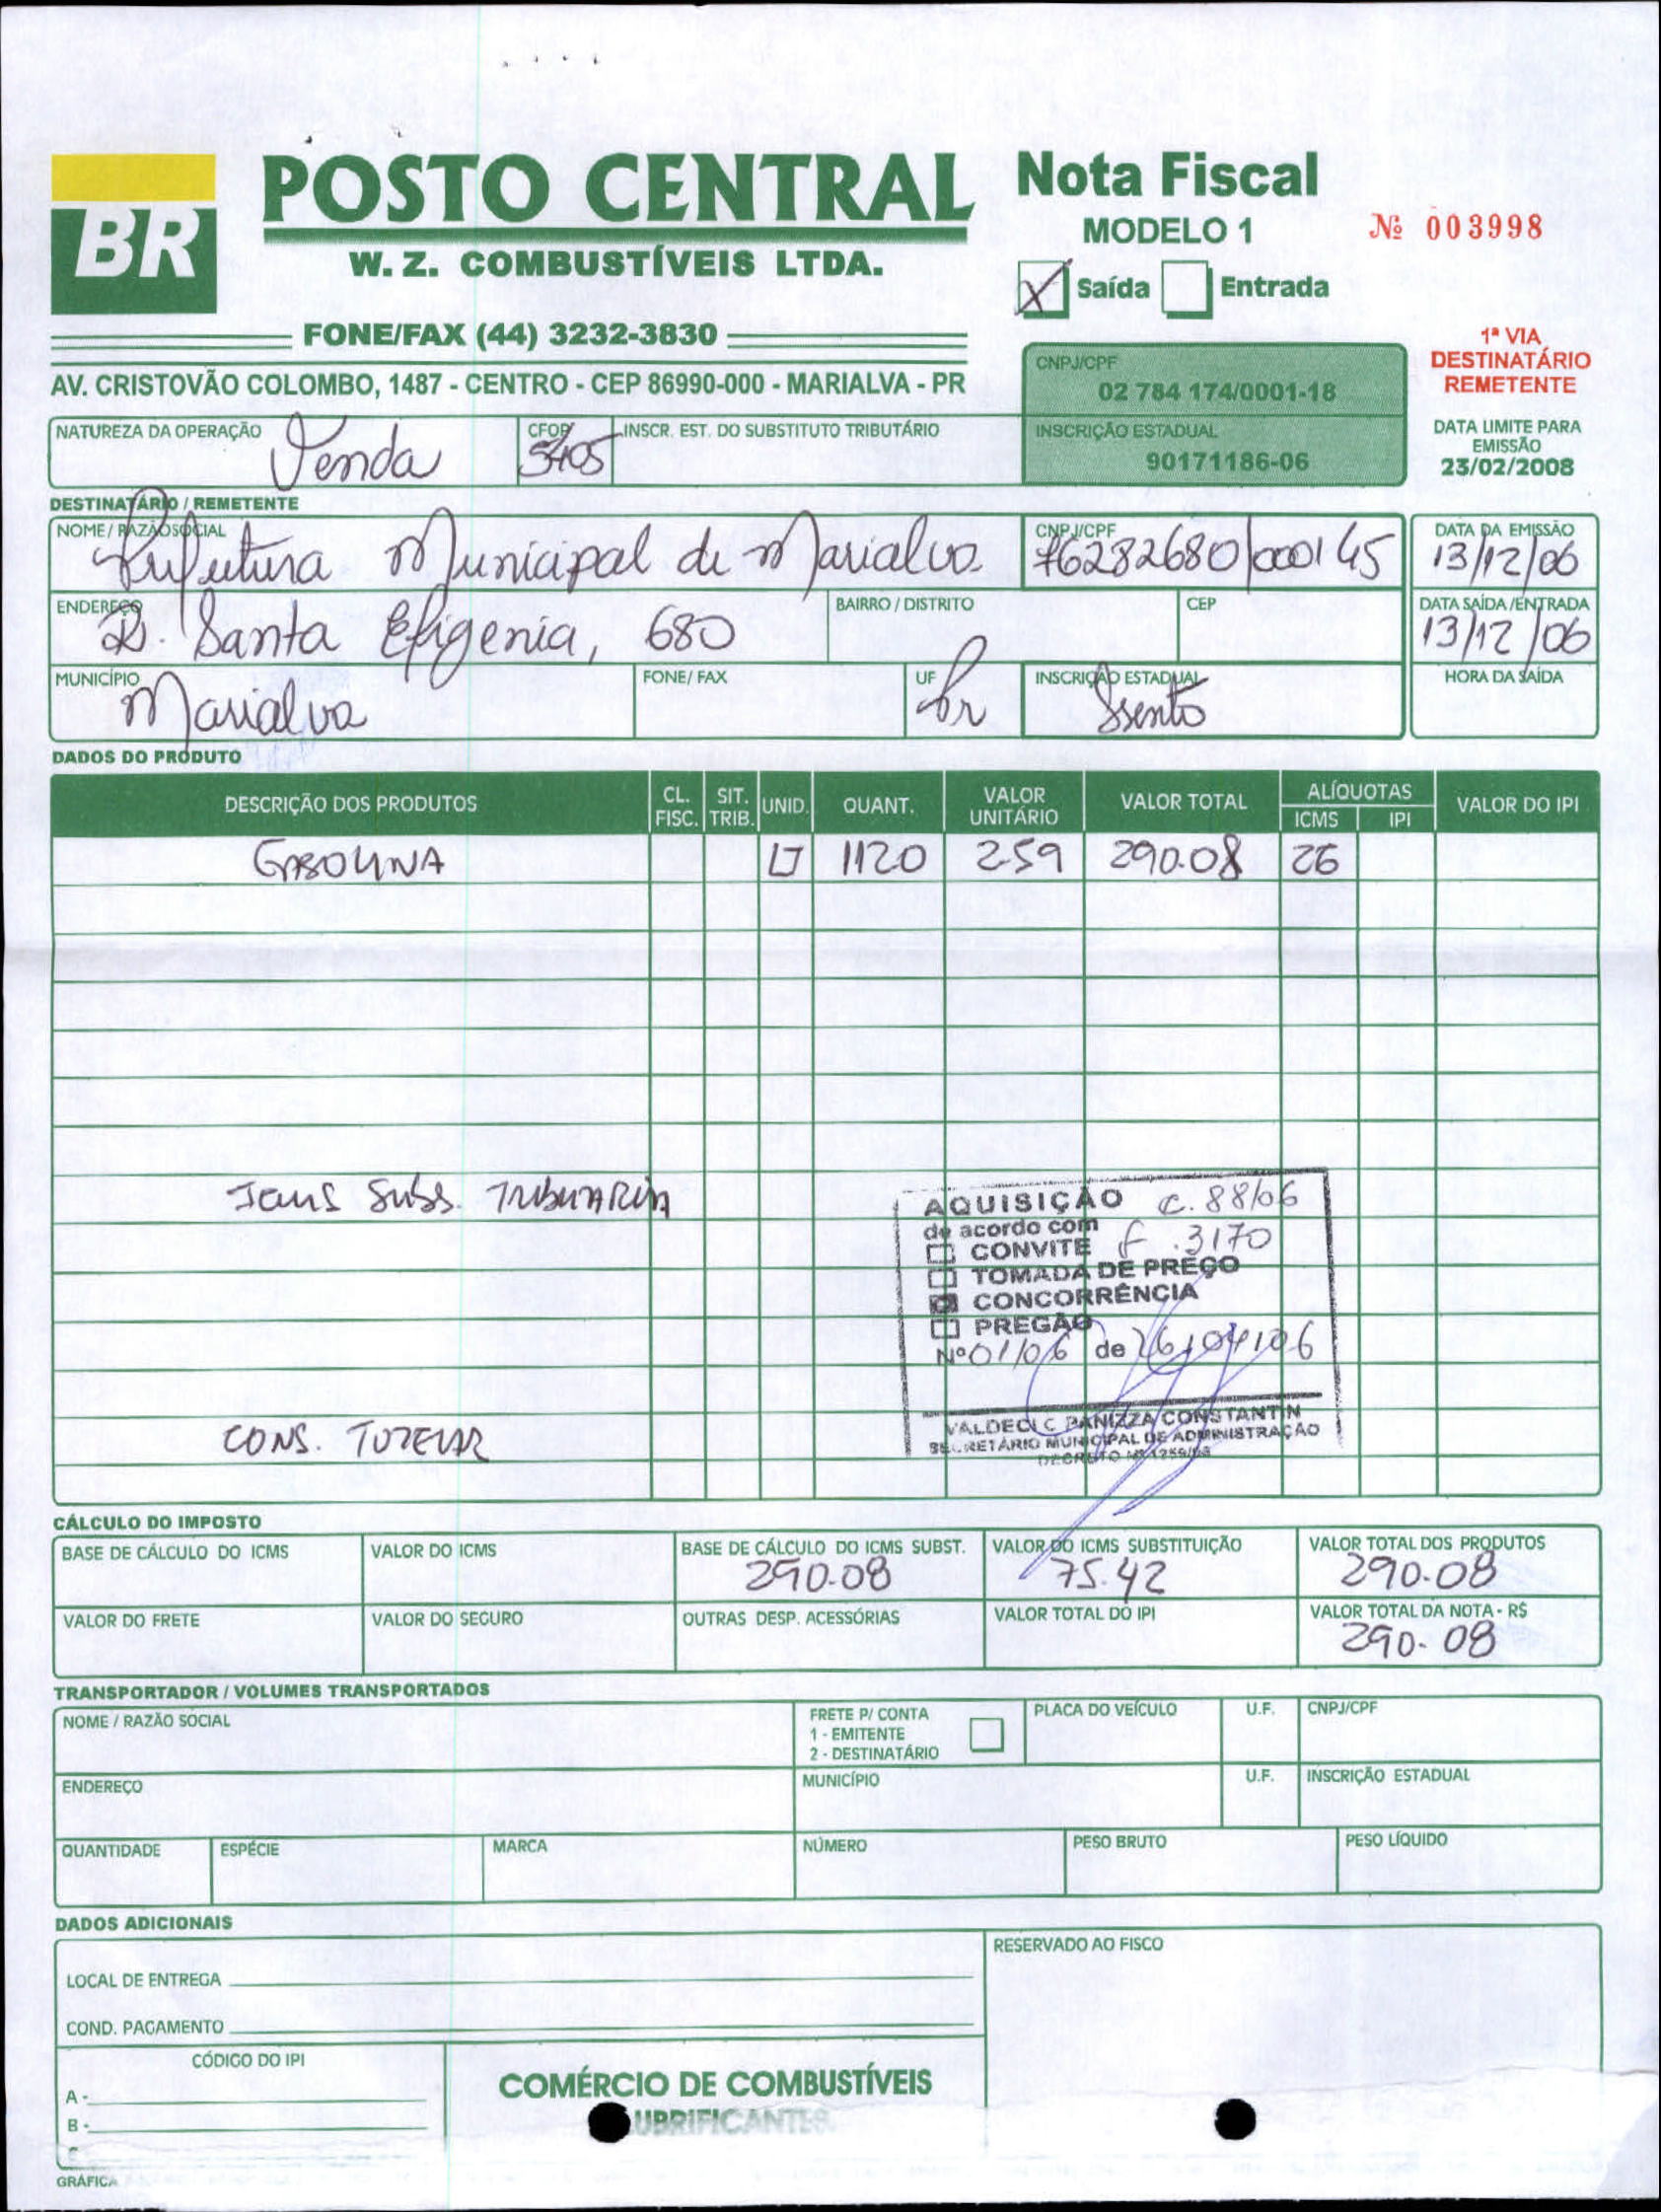 POSTO CENTRAL
BR
W. Z. COMBUSTÍVEIS LTDA.
FONE/FAX (44) 3232-3830
AV. CRISTOVÃO COLOMBO, 1487 - CENTRO - CEP 86990-000 - MARIALVA - PR
Nota Fiscal
MODELO 1
Nº 003998
X Saída Entrada
1ª VIA
DESTINATÁRIO
REMETENTE
CNPJ/CPF
02 784 174/0001-18
INSCRIÇÃO ESTADUAL
90171186-06
DATA LIMITE PARA
EMISSÃO
23/02/2008
NATUREZA DA OPERAÇÃO Venda
CFOP 5405
INSCR. EST. DO SUBSTITUTO TRIBUTÁRIO
DESTINATÁRIO / REMETENTE
NOME / RAZÃO SOCIAL
Prefeitura Municipal de Marialva
CNPJ/CPF
76282680/000145
DATA DA EMISSÃO
13/12/06
ENDEREÇO
R. Santa Efigenia, 680
BAIRRO / DISTRITO
CEP
DATA SAÍDA/ENTRADA
13/12/06
MUNICÍPIO
Marialva
FONE/ FAX
UF
Pr
INSCRIÇÃO ESTADUAL
Isento
HORA DA SAÍDA
DADOS DO PRODUTO
DESCRIÇÃO DOS PRODUTOS CL. FISC. SIT. TRIB. UNID. QUANT. VALOR UNITÁRIO VALOR TOTAL ALÍQUOTAS ICMS IPI VALOR DO IPI
GASOLINA LT 1120 2.59 290.08 26
Icms Subs. TRIBUTARIA
AQUISIÇÃO C. 88/06
de acordo com
CONVITE F .3170
TOMADA DE PREÇO
CONCORRÊNCIA
PREGÃO
Nº 01/06 de 26/04/06
VALDECI C PANIZZA CONSTANTIN
SECRETÁRIO MUNICIPAL DE ADMINISTRAÇÃO
DECRETO Nº 1259/06
CONS. TUTELAR
CÁLCULO DO IMPOSTO
BASE DE CÁLCULO DO ICMS
VALOR DO ICMS
BASE DE CÁLCULO DO ICMS SUBST.
290.08
VALOR DO ICMS SUBSTITUIÇÃO
75.42
VALOR TOTAL DOS PRODUTOS
290.08
VALOR DO FRETE
VALOR DO SEGURO
OUTRAS DESP. ACESSÓRIAS
VALOR TOTAL DO IPI
VALOR TOTAL DA NOTA - R$
290.08
TRANSPORTADOR / VOLUMES TRANSPORTADOS
NOME / RAZÃO SOCIAL
FRETE P/ CONTA
1 - EMITENTE
2 - DESTINATÁRIO
PLACA DO VEÍCULO
U.F.
CNPJ/CPF
ENDEREÇO
MUNICÍPIO
U.F.
INSCRIÇÃO ESTADUAL
QUANTIDADE
ESPÉCIE
MARCA
NÚMERO
PESO BRUTO
PESO LÍQUIDO
DADOS ADICIONAIS
LOCAL DE ENTREGA
COND. PAGAMENTO
RESERVADO AO FISCO
CÓDIGO DO IPI
A -
B -
C
COMÉRCIO DE COMBUSTÍVEIS
LUBRIFICANTES
GRÁFICA